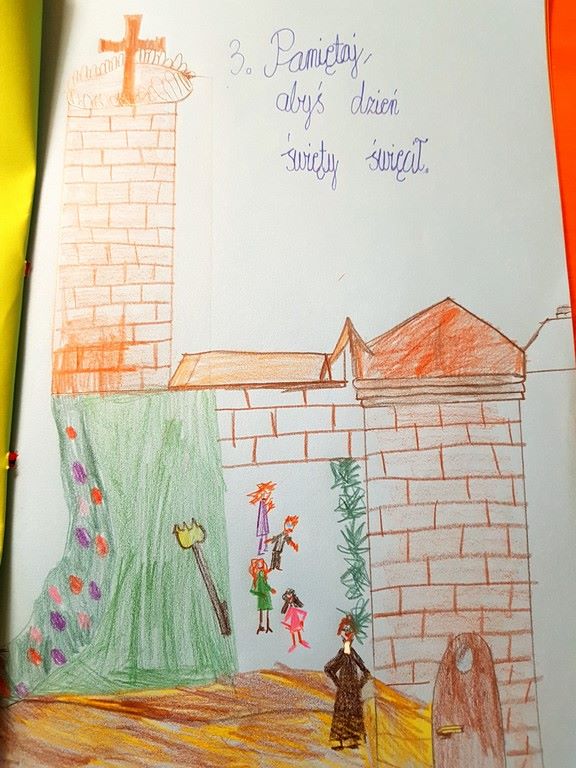 3. Pamiętaj,
abyś dzień
święty święcił.